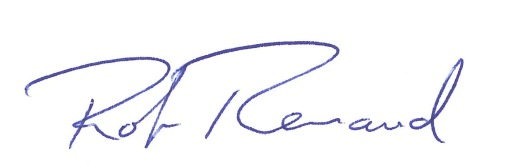 Rob Renaud